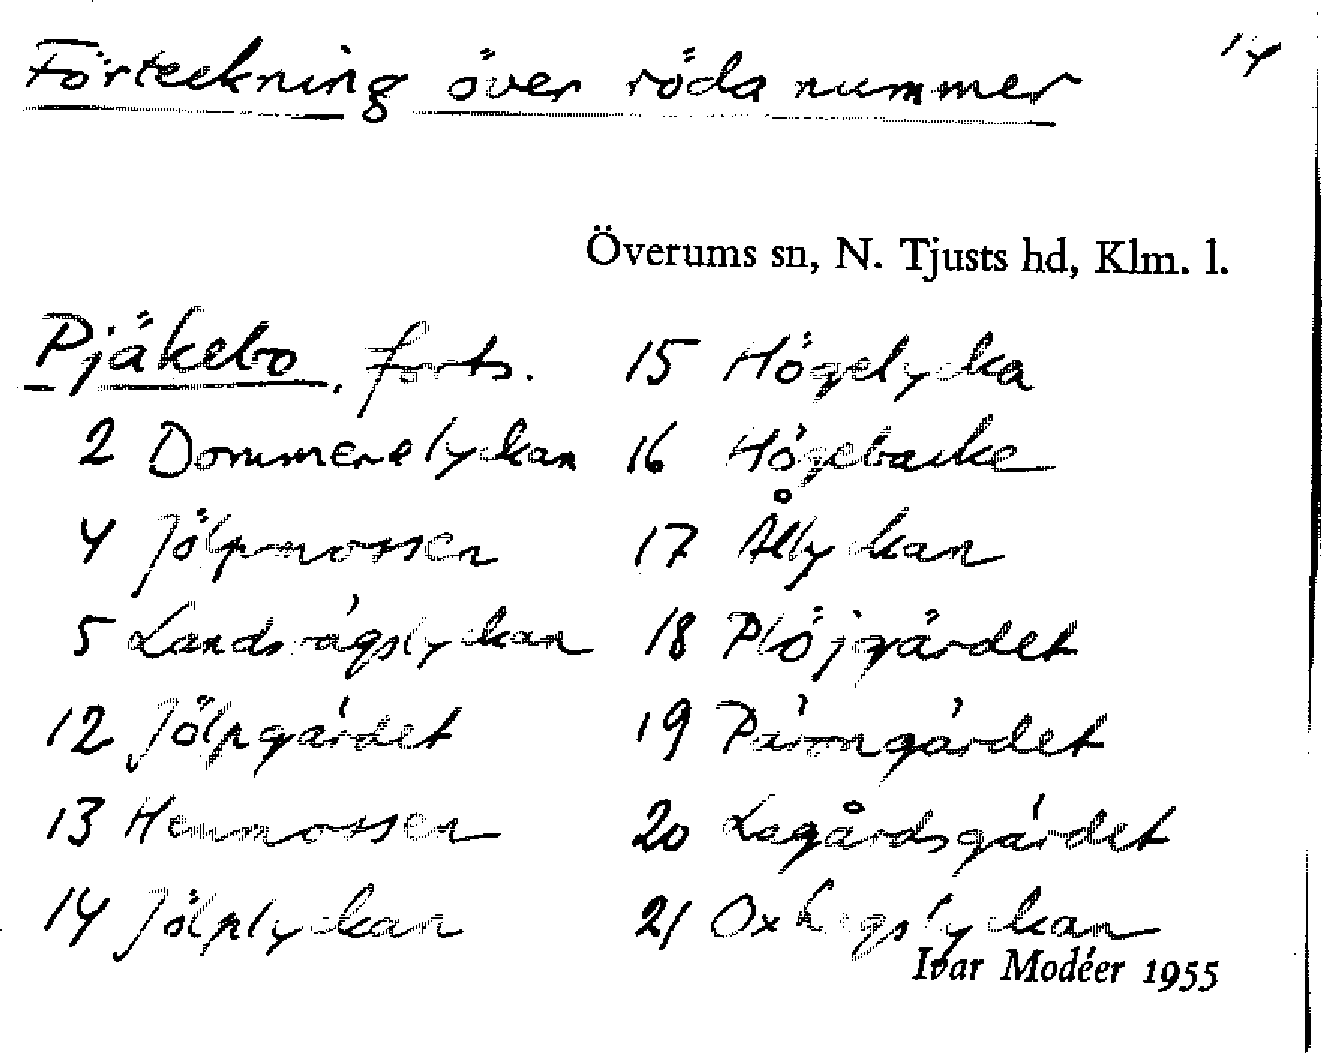 Förteckning över röda nummer 14
Överums sn, N. Tjusts hd, Klm. l.
Pjäkebo, forts.
2 Dommerelyckan
4 Jölpmossen
5 Landsvägslyckan
12 Jölpgärdet
13 Hemmossen
14 Jölplyckan
15 Högelycka
16 Högebacke
17 Ållyckan
18 Plöjgärdet
19 Pärongärdet
20 Lagårdsgärdet
21 Oxhagslyckan
Ivar Modéer 1955